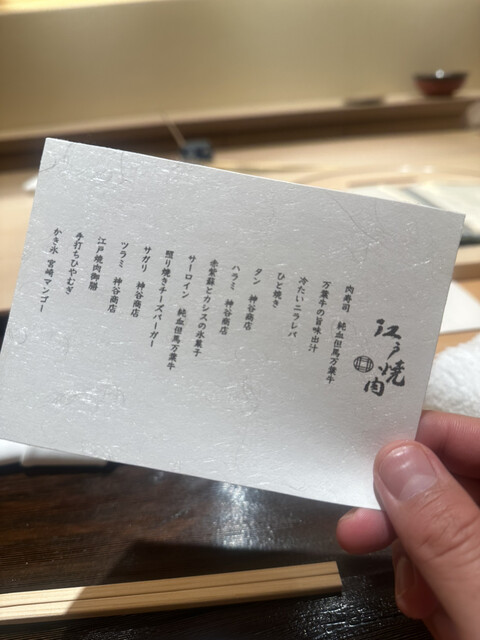 江戸焼肉
肉寿司 純血但馬万葉牛
万葉牛の旨味出汁
冷たいニラレバ
ひと焼き
タン 神谷商店
ハラミ 神谷商店
赤紫蘇とカシスの氷菓子
サーロイン 純血但馬万葉牛
照り焼きチーズバーガー
サガリ 神谷商店
ツラミ 神谷商店
江戸焼肉御膳
手打ちひやむぎ
かき氷 宮崎マンゴー